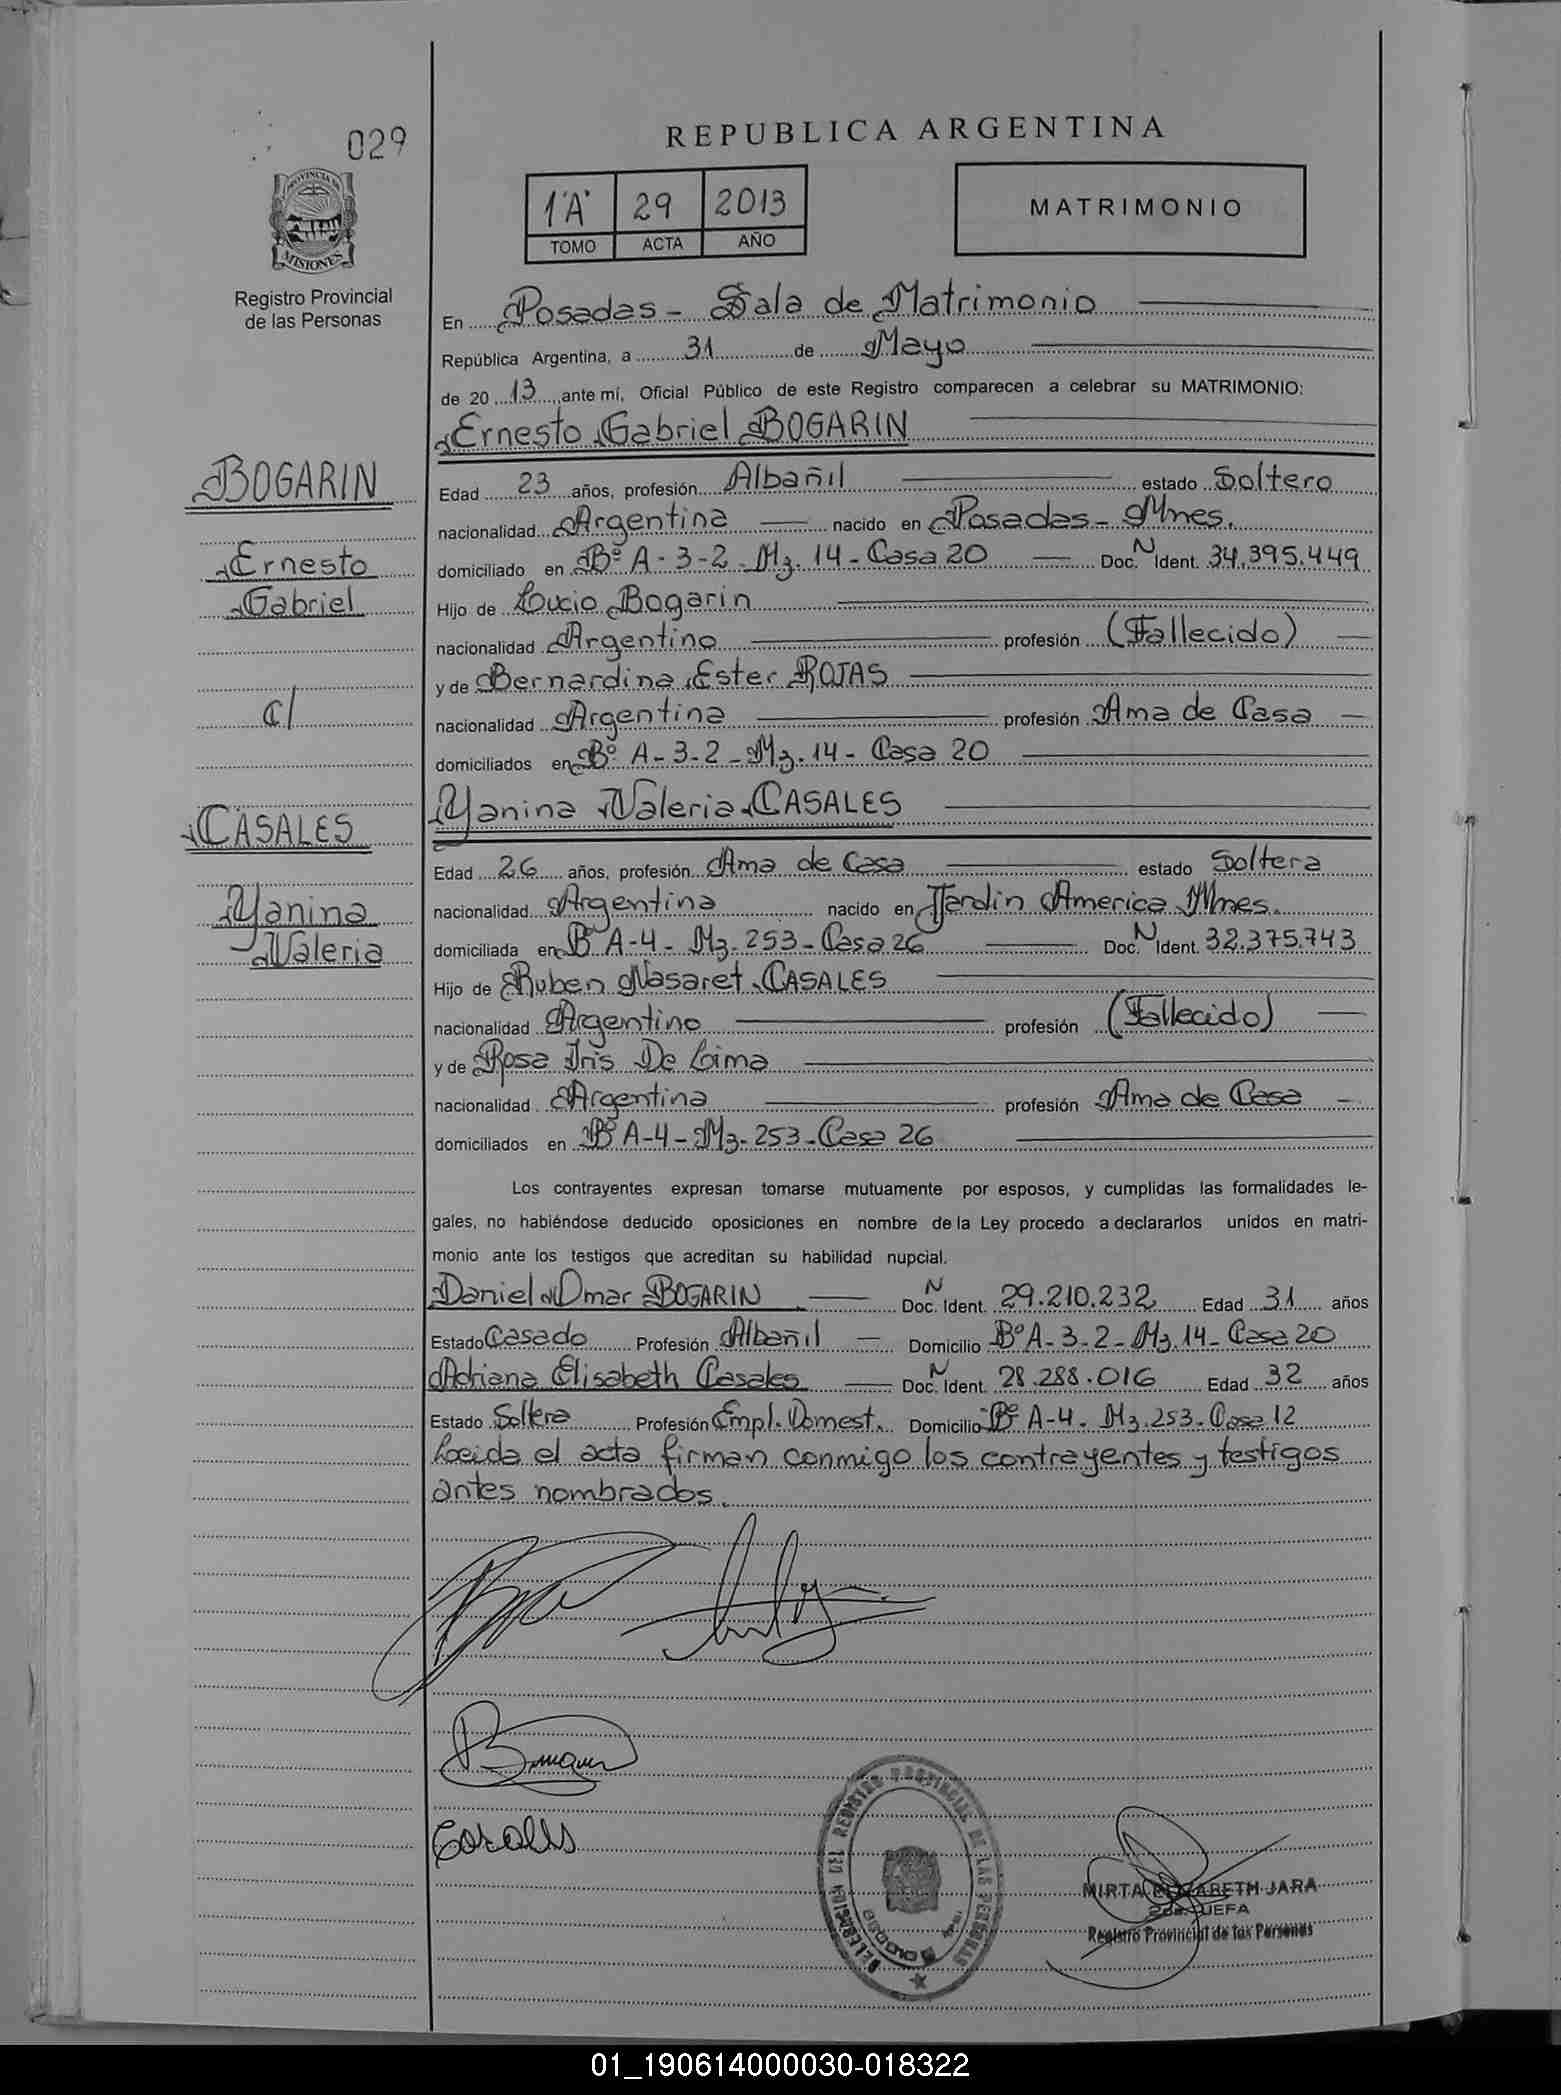 029
REPUBLICA ARGENTINA
1"A" 29 2013
TOMO ACTA AÑO
MATRIMONIO
PROVINCIA DE MISIONES
Registro Provincial
de las Personas
En Posadas - Sala de Matrimonio
República Argentina, a 31 de Mayo
de 20 13 ante mí, Oficial Público de este Registro comparecen a celebrar su MATRIMONIO:
Ernesto Gabriel BOGARIN
BOGARIN
Edad 23 años, profesión Albañil estado Soltero
nacionalidad Argentina nacido en Posadas - Mnes.
Ernesto
domiciliado en Bº A-3-2 - Mz. 14 - Casa 20 Doc. N Ident. 34.395.449
Gabriel
Hijo de Lucio Bogarin
nacionalidad Argentino profesión (Fallecido)
y de Bernardina Ester ROJAS
C/
nacionalidad Argentina profesión Ama de Casa
domiciliados en Bº A-3-2 - Mz. 14 - Casa 20
Yanina Valeria CASALES
CASALES
Edad 26 años, profesión Ama de Casa estado Soltera
Yanina
nacionalidad Argentina nacido en Jardin America Mnes.
Valeria
domiciliada en Bº A-4 - Mz. 253 - Casa 26 Doc. N Ident. 32.375.743
Hijo de Ruben Nasaret CASALES
nacionalidad Argentino profesión (Fallecido)
y de Rosa Iris De Lima
nacionalidad Argentina profesión Ama de Casa
domiciliados en Bº A-4 - Mz. 253 - Casa 26
Los contrayentes expresan tomarse mutuamente por esposos, y cumplidas las formalidades le-
gales, no habiéndose deducido oposiciones en nombre de la Ley procedo a declararlos unidos en matri-
monio ante los testigos que acreditan su habilidad nupcial.
Daniel Omar BOGARIN Doc. N Ident. 29.210.232 Edad 31 años
Estado Casado Profesión Albañil Domicilio Bº A-3-2 - Mz. 14 - Casa 20
Adriana Elisabeth Casales Doc. N Ident. 28.288.016 Edad 32 años
Estado Soltera Profesión Empl. Domest. Domicilio Bº A-4 - Mz. 253 - Casa 12
Leeida el acta firman conmigo los contrayentes y testigos
antes nombrados.
Casales
REGISTRO PROVINCIAL DE LAS PERSONAS
MIRTA ELIZABETH JARA
2da. JEFA
Registro Provincial de las Personas
01_190614000030-018322